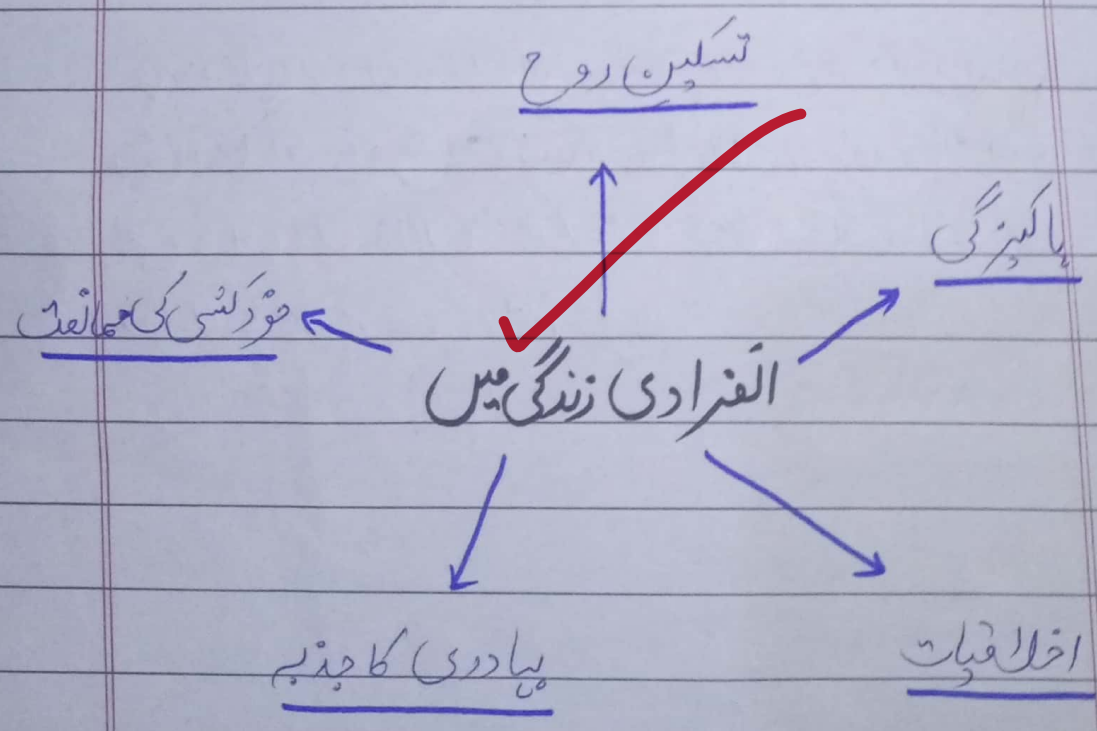 تسکین روح
پاکیزگی
خودکشی کی ممانعت
انفرادی زندگی میں
بہادری کا جذبہ
اخلاقیات